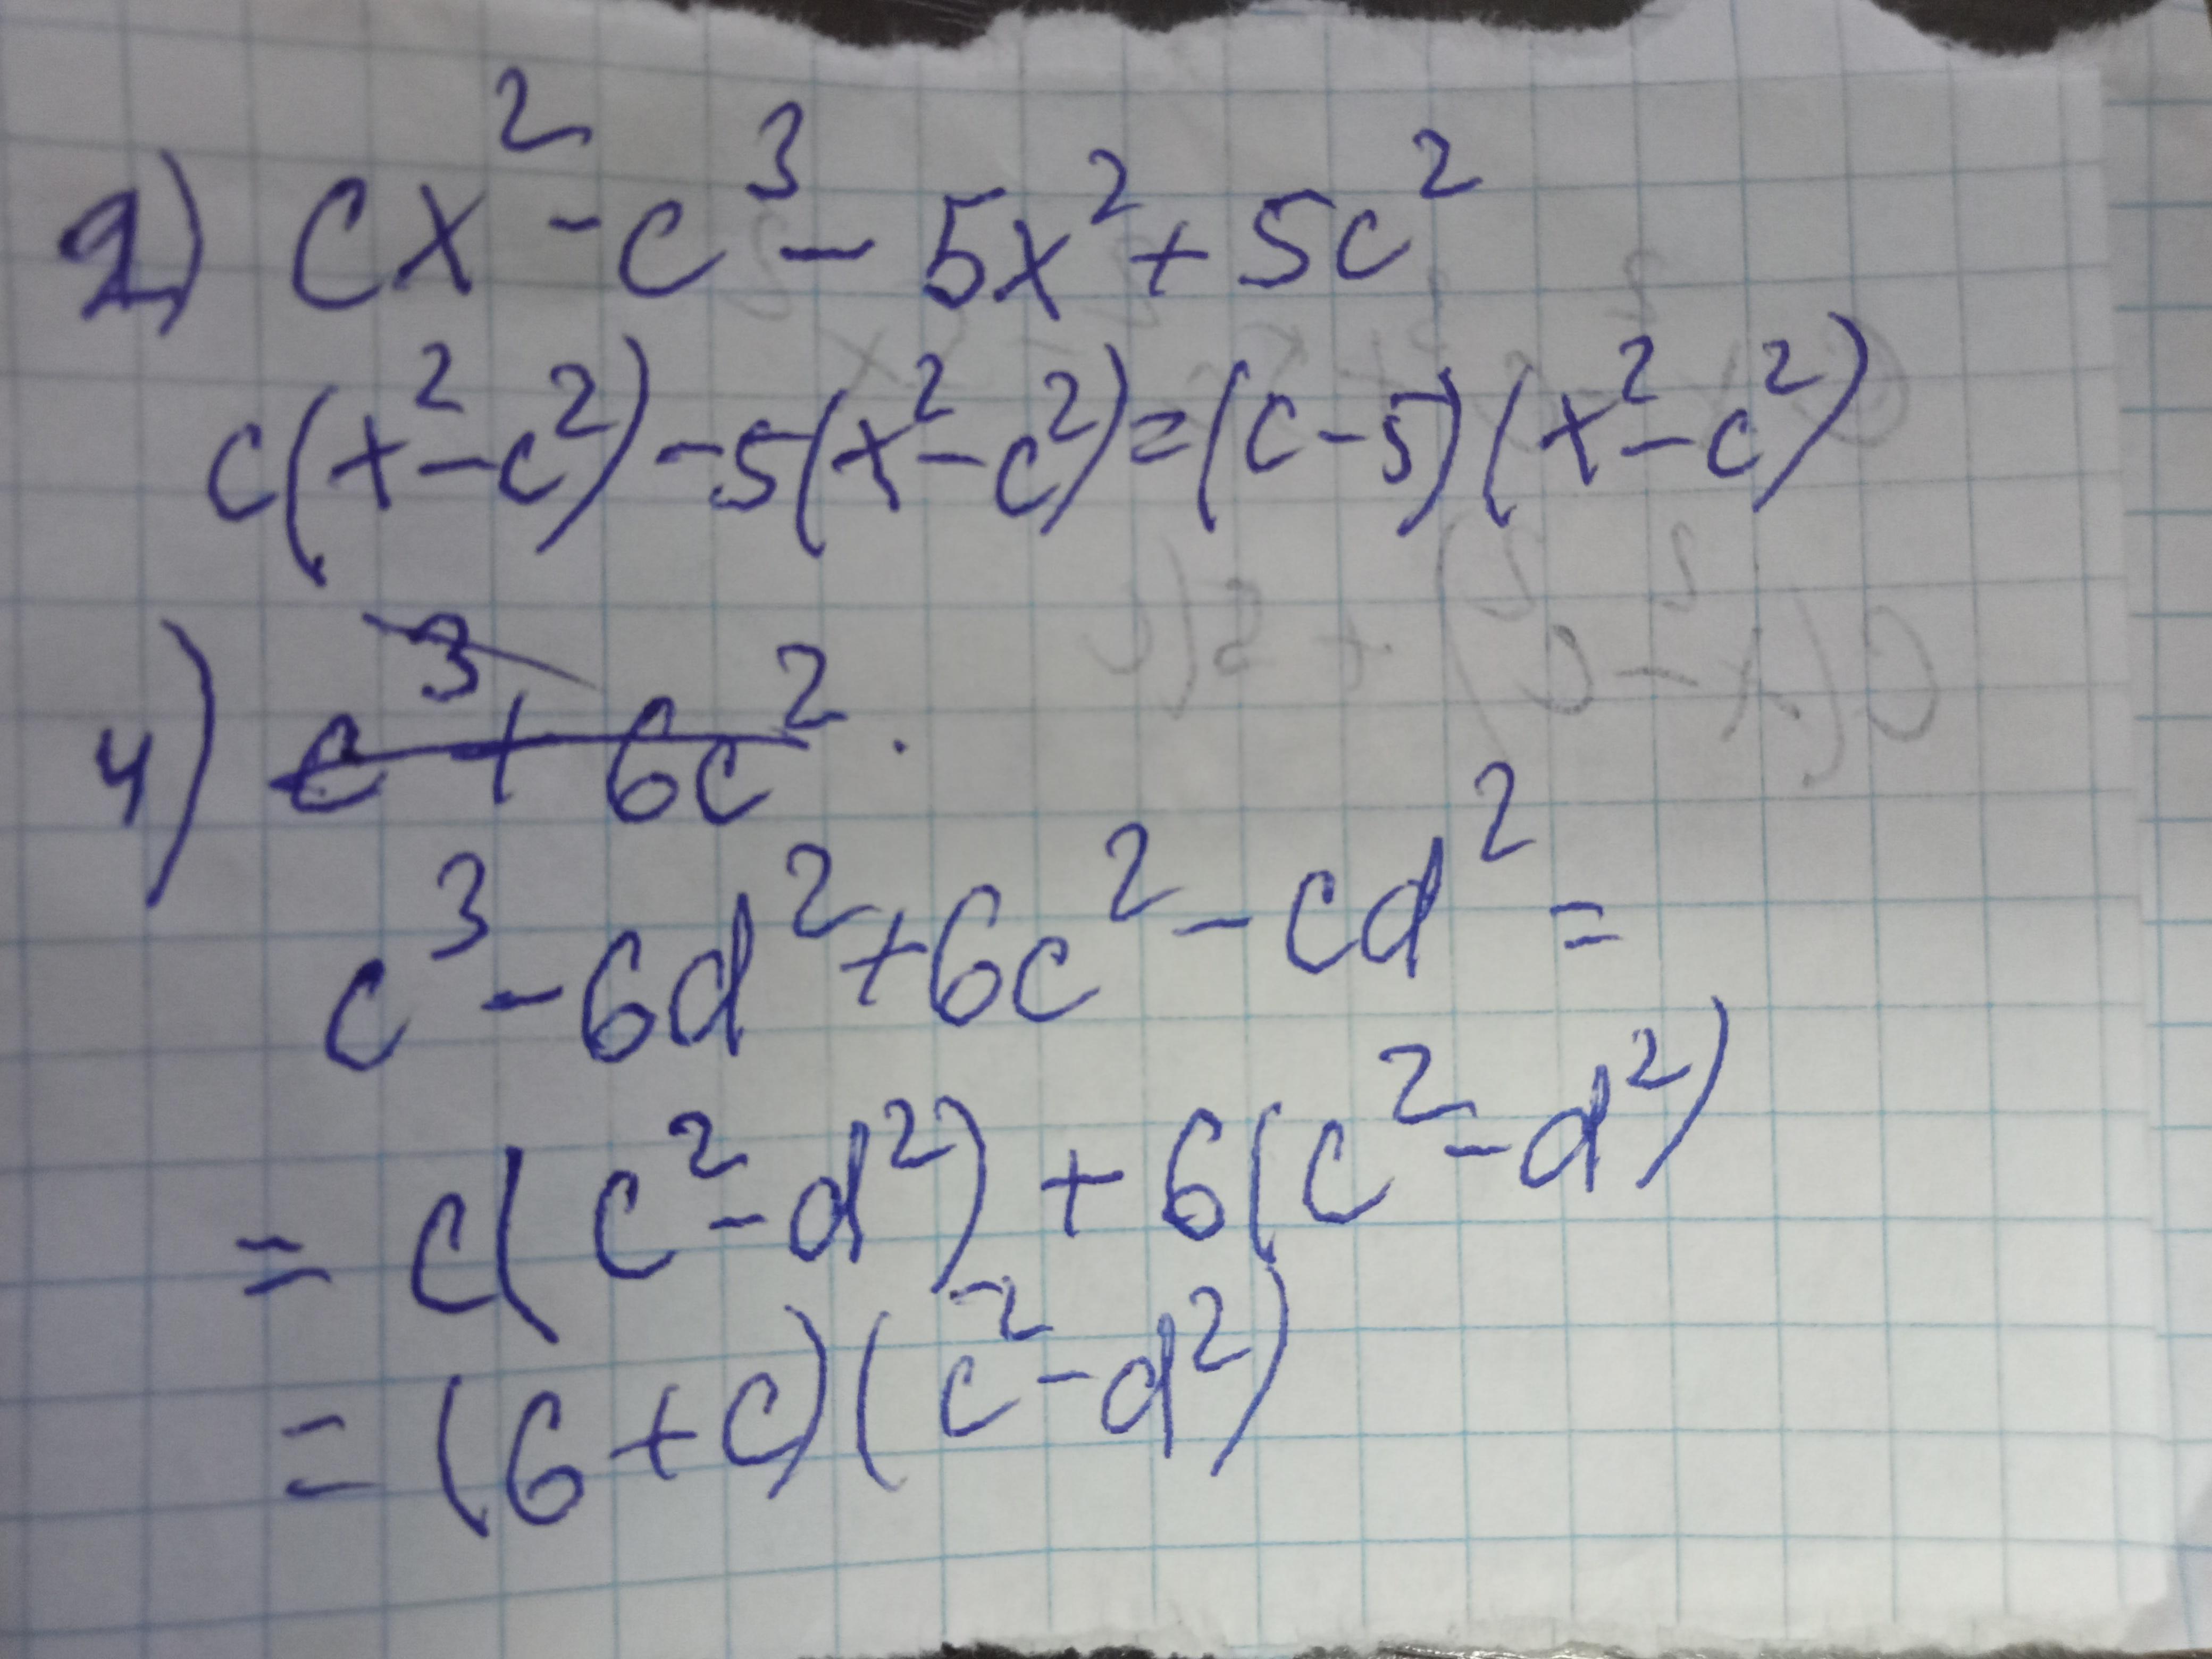 2) cx² - c³ - 5x² + 5c²
c(x² - c²) - 5(x² - c²) = (c - 5)(x² - c²)
4) c³ + 6c² .
c³ - 6d² + 6c² - cd² =
= c(c² - d²) + 6(c² - d²)
= (6 + c)(c² - d²)